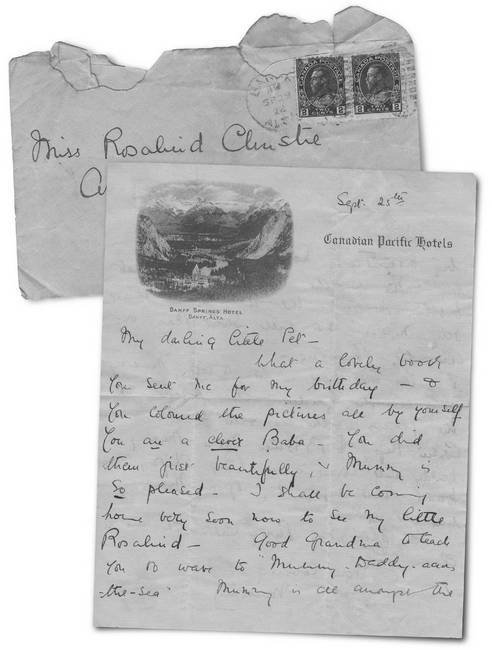 Miss Rosalind Christie
CANADA POSTAGE
2 CENTS 2
CANADA POSTAGE
2 CENTS 2
Sept. 25th
Canadian Pacific Hotels
BANFF SPRINGS HOTEL
BANFF, ALTA.
My darling little Pet-
What a lovely book
You sent me for my birthday - &
You coloured the pictures all by yourself
You are a clever Baba - You did
them just beautifully, & Mummy is
so pleased - I shall be coming
home very soon now to see my little
Rosalind - Good Grandma to teach
You to wave to "Mummy-Daddy-
-the-sea" Mummy is all amongst the